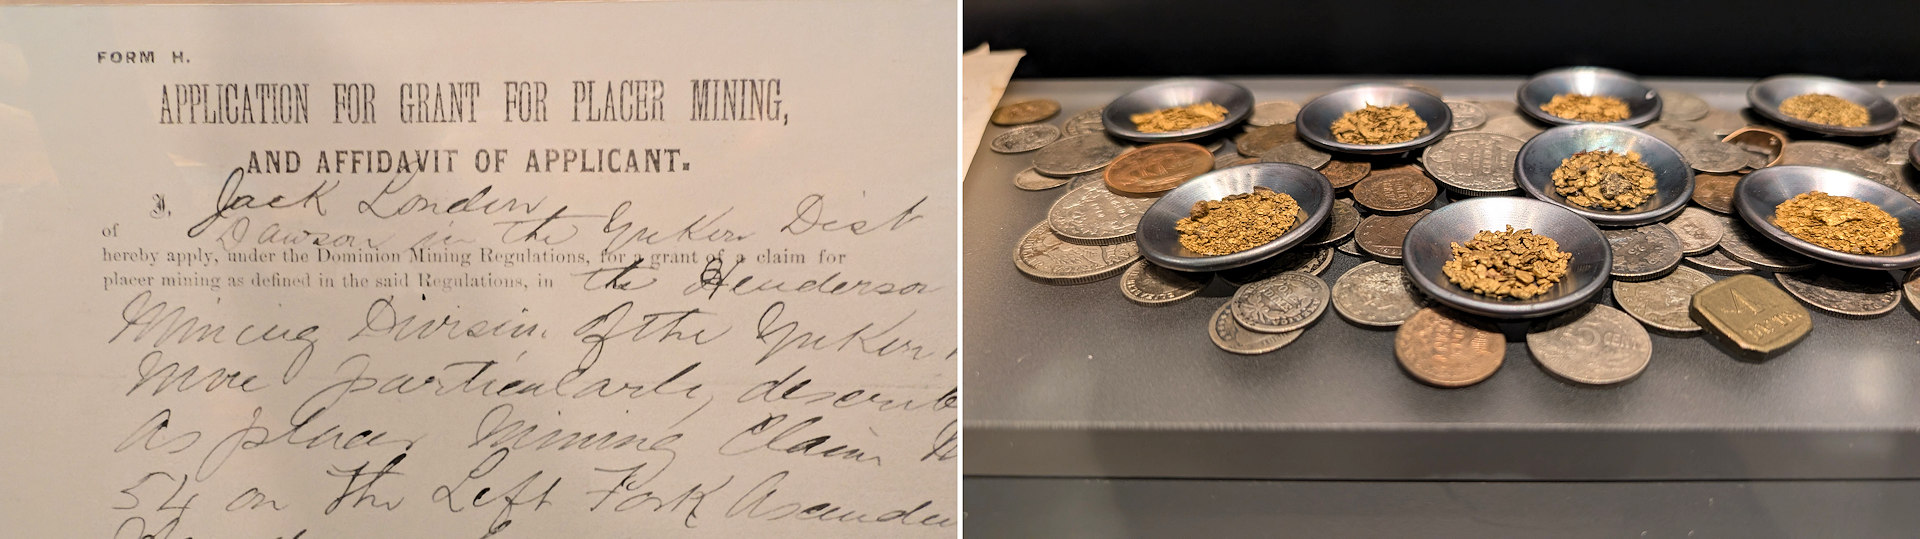 FORM H.
APPLICATION FOR GRANT FOR PLACER MINING,
AND AFFIDAVIT OF APPLICANT.
I, Jack London
of Dawson in the Yukon Dist
hereby apply, under the Dominion Mining Regulations, for a grant of a claim for
placer mining as defined in the said Regulations, in the Henderson
Mining Division of the Yukon
More particularly describ
as placer Mining Claim N
54 on the Left Fork Ascendin
5 CENTS